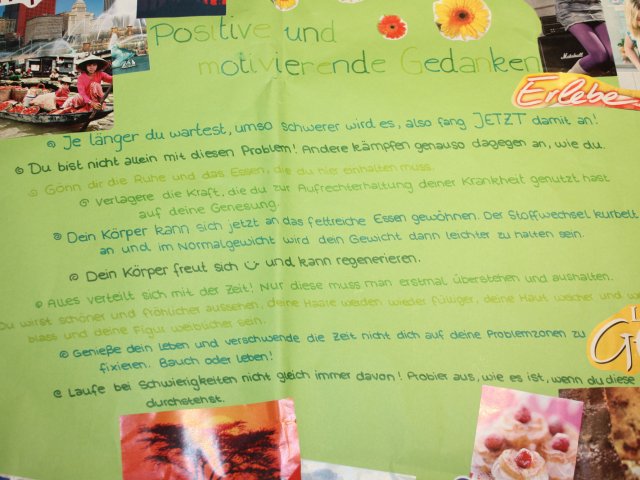 Positive und
motivierende Gedanken
Marshall
Erlebe
Je länger du wartest, umso schwerer wird es, also fang JETZT damit an!
Du bist nicht allein mit diesen Problem! Andere kämpfen genauso dagegen an, wie du.
Gönn dir die Ruhe und das Essen, die du hier einhalten muss.
Verlagere die Kraft, die du zur Aufrechterhaltung deiner Krankheit genutzt hast
auf deine Genesung.
Dein Körper kann sich jetzt an das fettreiche Essen gewöhnen. Der Stoffwechsel kurbelt
an und im Normalgewicht wird dein Gewicht dann leichter zu halten sein.
Dein Körper freut sich und kann regenerieren.
Alles verteilt sich mit der Zeit! Nur diese muss man erstmal überstehen und aushalten.
Du wirst schöner und fröhlicher aussehen, deine Haare werden wieder fülliger, deine Haut weicher und
blass und deine Figur weiblicher sein.
Genieße dein Leben und verschwende die Zeit nicht dich auf deine Problemzonen zu
fixieren. Bauch oder Leben!
Laufe bei Schwierigkeiten nicht gleich immer davon! Probier aus, wie es ist, wenn du diese
durchstehst.